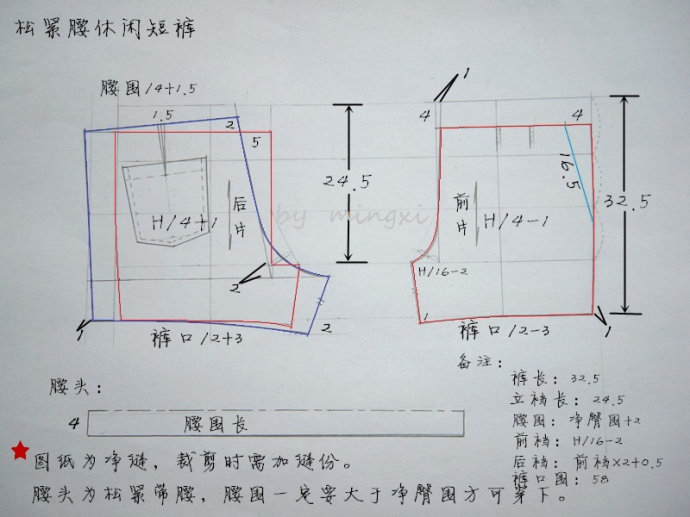 松紧腰休闲短裤
腰围/4+1.5
1.5
2
5
24.5
H/4+1
后片
2
1
裤口/2+3
2
by mingxi
1
4
4
16.5
前片
H/4-1
32.5
H/16-2
1
裤口/2-3
1
备注:
裤长: 32.5
立裆长: 24.5
腰围: 净臀围+2
前裆: H/16-2
后裆: 前裆×2+0.5
裤口围: 58
腰头:
4
腰围长
图纸为净缝，裁剪时需加缝份。
腰头为松紧带腰，腰围一定要大于净臀围方可穿下。